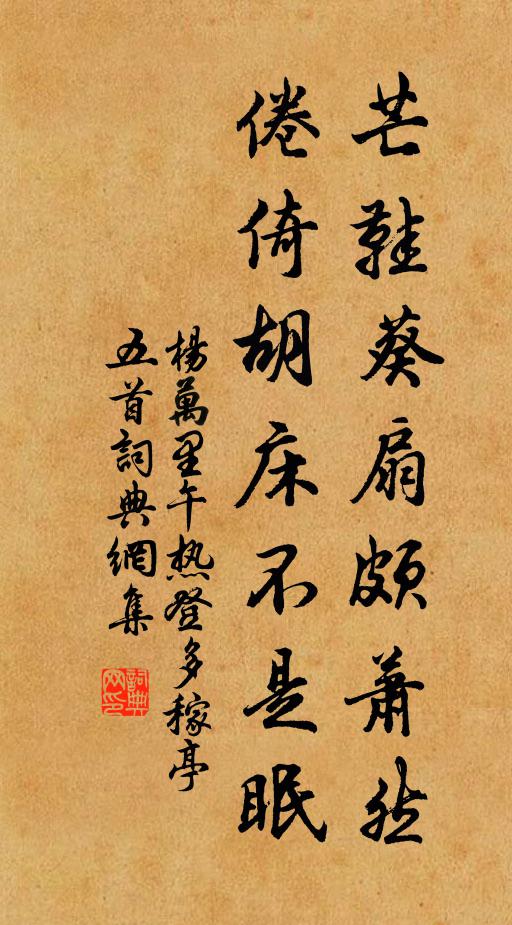 芒鞋葵扇頗蕭然
倦倚胡床不是眠
楊萬里午热登多稼亭
五首詞典網集
詞典
网印